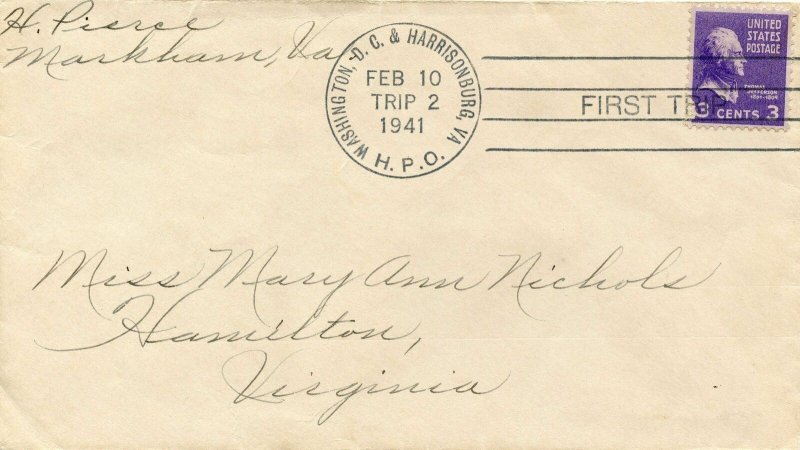 H. Pierce
Markham, Va
WASHINGTON, D. C. & HARRISONBURG, VA
FEB 10
TRIP 2
1941
H. P. O.
FIRST TRIP
UNITED
STATES
POSTAGE
THOMAS
JEFFERSON
3 CENTS 3
Miss Mary Ann Nichols
Hamilton,
Virginia